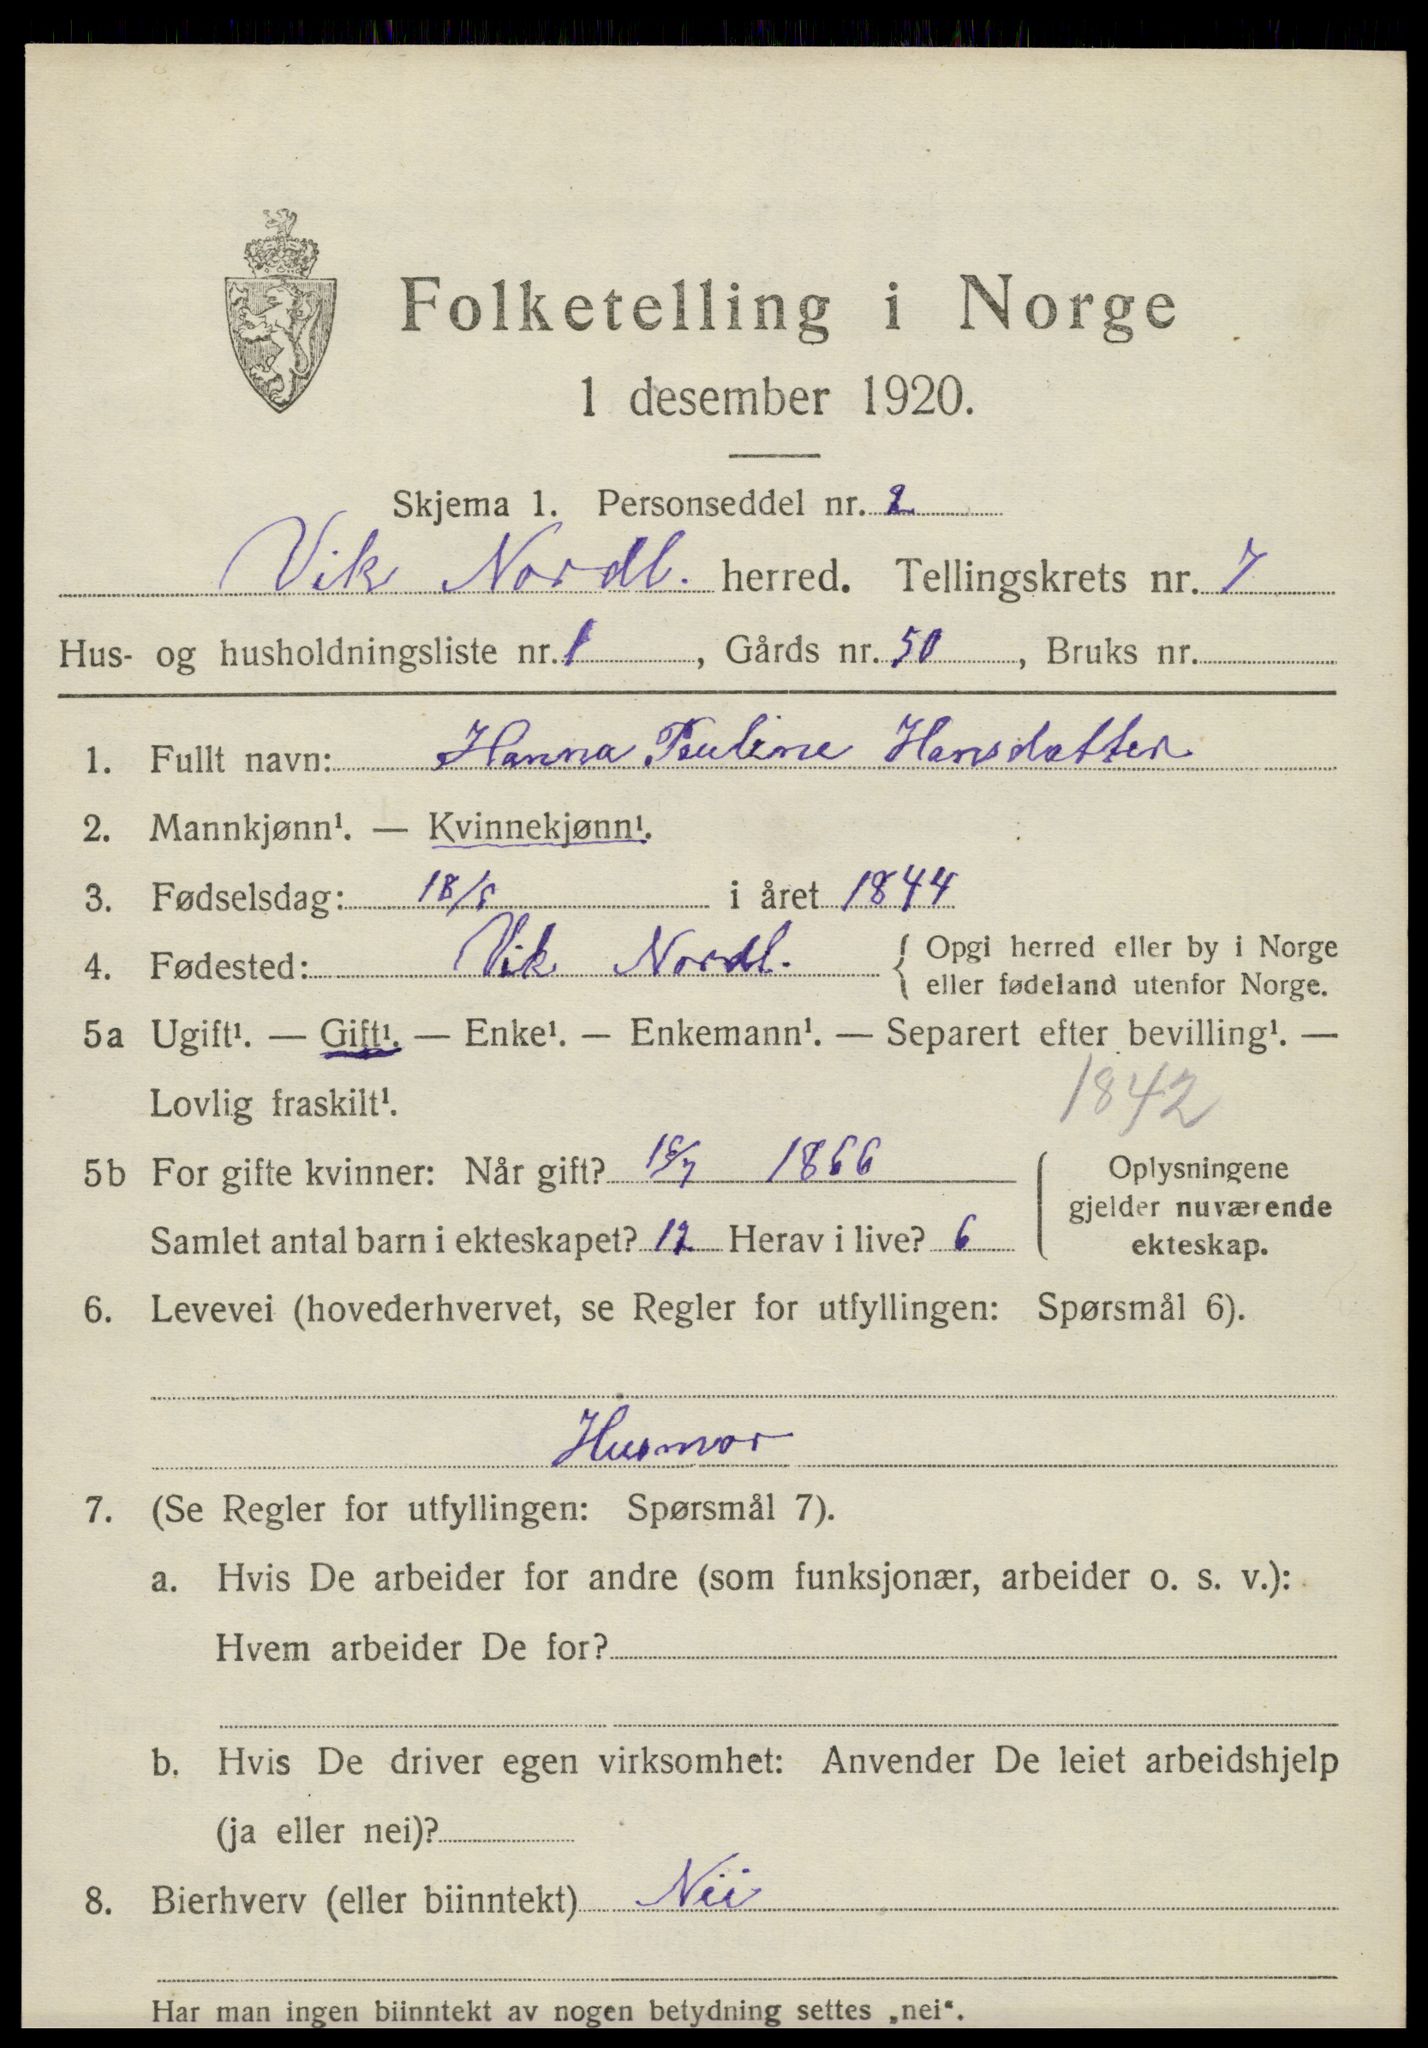 Folketelling i Norge
1 desember 1920.
Skjema 1. Personseddel nr. 2
Vik Nordl. herred. Tellingskrets nr. 7
Hus- og husholdningsliste nr. 1, Gårds nr. 50, Bruks nr.
1. Fullt navn: Hanna Pauline Hansdatter
2. Mannkjønn¹. — Kvinnekjønn¹.
3. Fødselsdag: 18/8 i året 1844
4. Fødested: Vik Nordl. { Opgi herred eller by i Norge
eller fødeland utenfor Norge.
5a Ugift¹. — Gift¹. — Enke¹. — Enkemann¹. — Separert efter bevilling¹. —
Lovlig fraskilt¹. 1842
5b For gifte kvinner: Når gift? 16/7 1866 { Oplysningene
gjelder nuværende
Samlet antal barn i ekteskapet? 12 Herav i live? 6 ekteskap.
6. Levevei (hovederhvervet, se Regler for utfyllingen: Spørsmål 6).
Husmor
7. (Se Regler for utfyllingen: Spørsmål 7).
a. Hvis De arbeider for andre (som funksjonær, arbeider o. s. v.):
Hvem arbeider De for?
b. Hvis De driver egen virksomhet: Anvender De leiet arbeidshjelp
(ja eller nei)?
8. Bierhverv (eller biinntekt) Nei
Har man ingen biinntekt av nogen betydning settes „nei“.